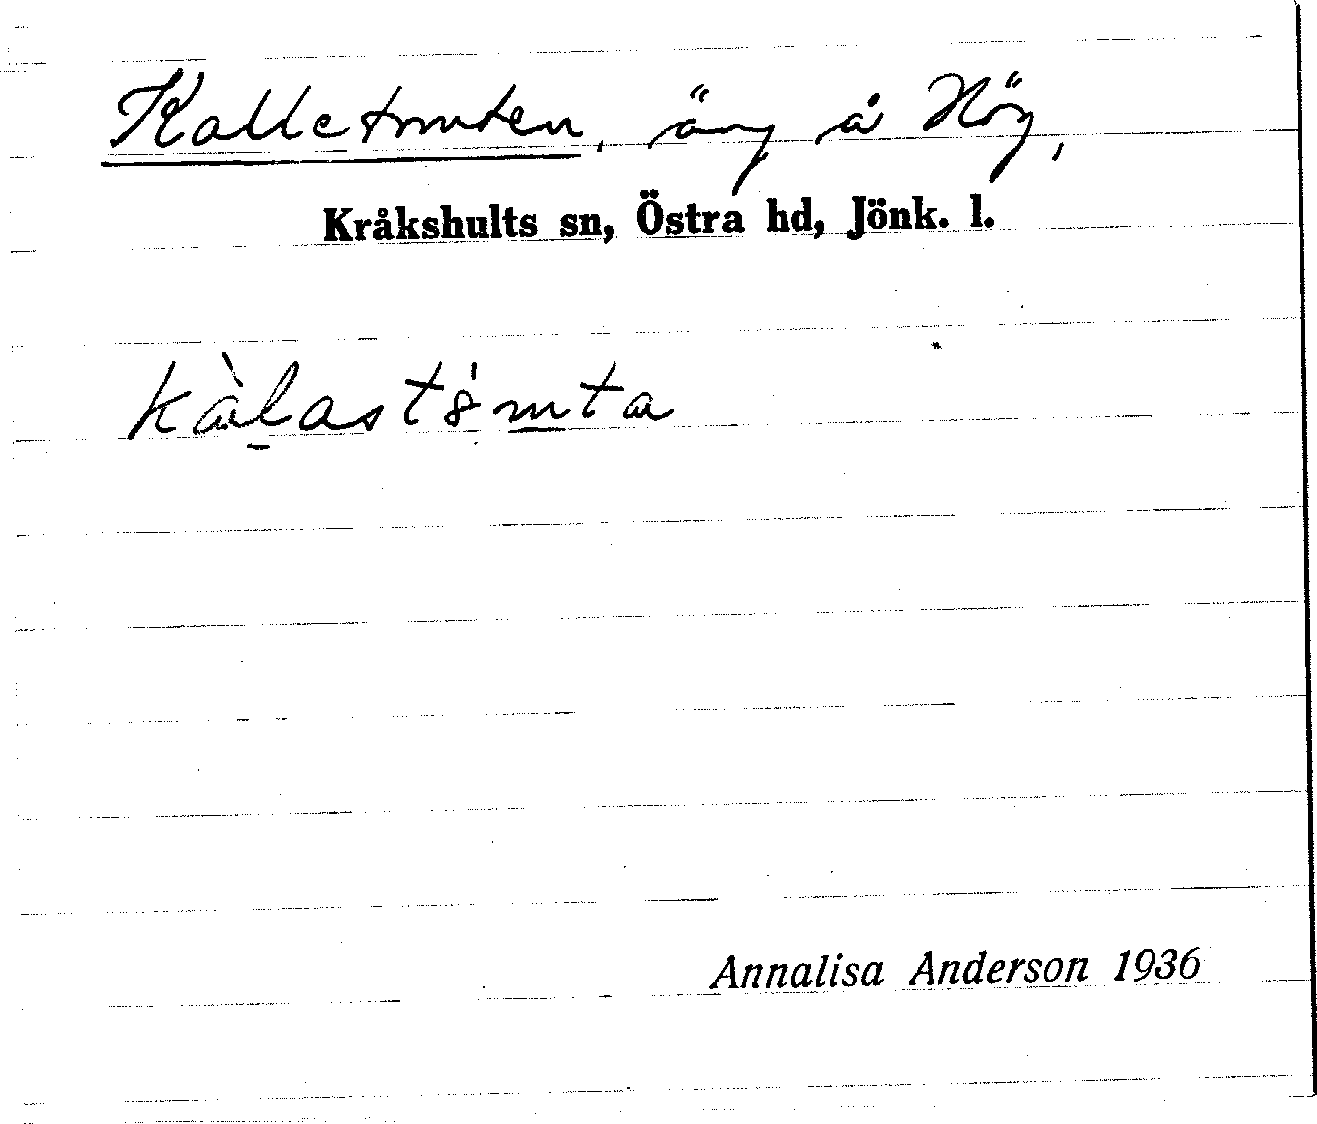 Kalletomten, äng å Hög,
Kråkshults sn, Östra hd, Jönk. l.
Annalisa Anderson 1936